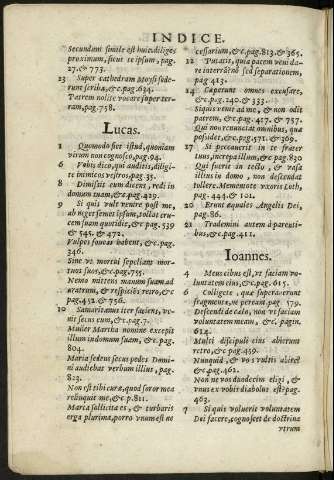 INDICE.
Secundum simile est huic, diliges
proximum, sicut te ipsum, pag.
27. & 773.
23 Super cathedram Moysi sede-
runt scribæ, &c. pag. 634.
Patrem nolite vocare super ter-
ram, pag. 758.
Lucas.
1 Quomodo fiet istud, quoniam
virum non cognosco, pag. 94.
6 Vobis dico, qui auditis, diligi-
te inimicos vestros, pag. 35.
8 Dimisit eum dicens, redi in
domum tuam, &c. pag. 429.
9 Si quis vult venire post me,
abneget semet ipsum, tollat cru-
cem suam quotidie, &c. pag. 539
& 545. & 472.
Vulpes foueas habent, &c. pag.
346.
Sine vt mortui sepeliant mor-
tuos suos, &c. pag. 755.
Nemo mittens manum suam ad
aratrum, & respiciens retro, &c
pag. 452 & 756.
10 Samaritanus iter faciens, ve-
nit secus eum, &c. pag. 7.
Mulier Martha nomine excepit
illum indomum suam, &c. pag.
804.
Maria sedens secus pedes Domi-
ni audiebat verbum illius, pag.
823.
Non est tibi cura, quod soror mea
reliquit me, &c. p. 811.
Marta sollicita es, & turbaris
erga plurima, porro vnum est ne
cessarium, &c. pag. 813. & 365.
12 Putatis, quia pacem veni da-
re interram? nō sed separationem,
pag. 413.
14 Cæperunt omnes excusare,
&c. pag. 240. & 333.
Si quis venit ad me, & non odit
patrem, &c. pag. 417. & 757.
Qui non renuntiat omnibus, quæ
possidet, &c. pag. 571. & 369.
17 Si peccauerit in te frater
tuus, increpa illum, &c. pag. 830
Qui fuerit in tecto, & vasa
illius in domo, non descendat
tollere. Mementote vxoris Loth,
pag. 444. & 101.
20 Erunt æquales Angelis Dei,
pag. 86.
21 Trademini autem à parenti-
bus, &c. pag. 411.
Ioannes.
4 Meus cibus est, vt faciam vo-
luntatem eius, &c. pag. 615.
6 Colligete, quæ superauerunt
fragmenta, ne pereant, pag. 579.
Descendi de cælo, non vt faciam
voluntatem meam, &c. pagin.
614.
Multi discipuli eius abierunt
retro, &c. pag. 459.
Nunquid, & vos vultis abire?
&c. pag. 462.
Non ne vos duodecim eligi, &
vnus ex vobis diabolus est? pag.
463.
7 Si quis voluerit voluntatem
Dei facere, cognoscet de doctrina
vtrum